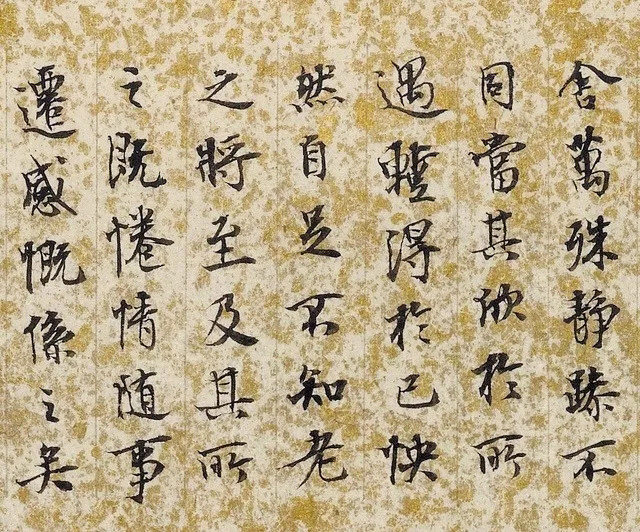 舍萬殊静躁不
同當其欣於所
遇暫得於己怏
然自足不知老
之將至及其所
之既惓情随事
遷感慨係之矣